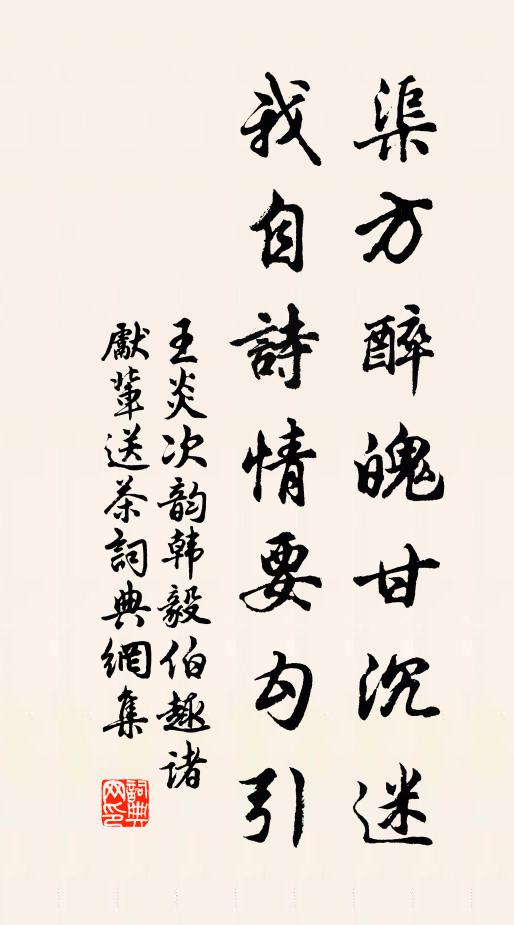 渠方醉魄甘沉迷
我自詩情要勾引
王炎次韵韩毅伯趣诸
獻輩送茶詞典網集
詞典网印